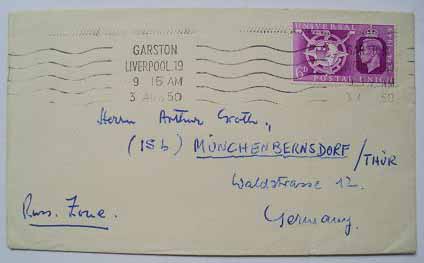 GARSTON
LIVERPOOL 19
9 15 AM
3 AUG 50
UNIVERSAL
6D
POSTAL UNION
50
Herrn Arthur Groth,
(15b) MÜNCHENBERNSDORF /THÜR
Waldstrasse 12.
Russ. Zone.
Germany.